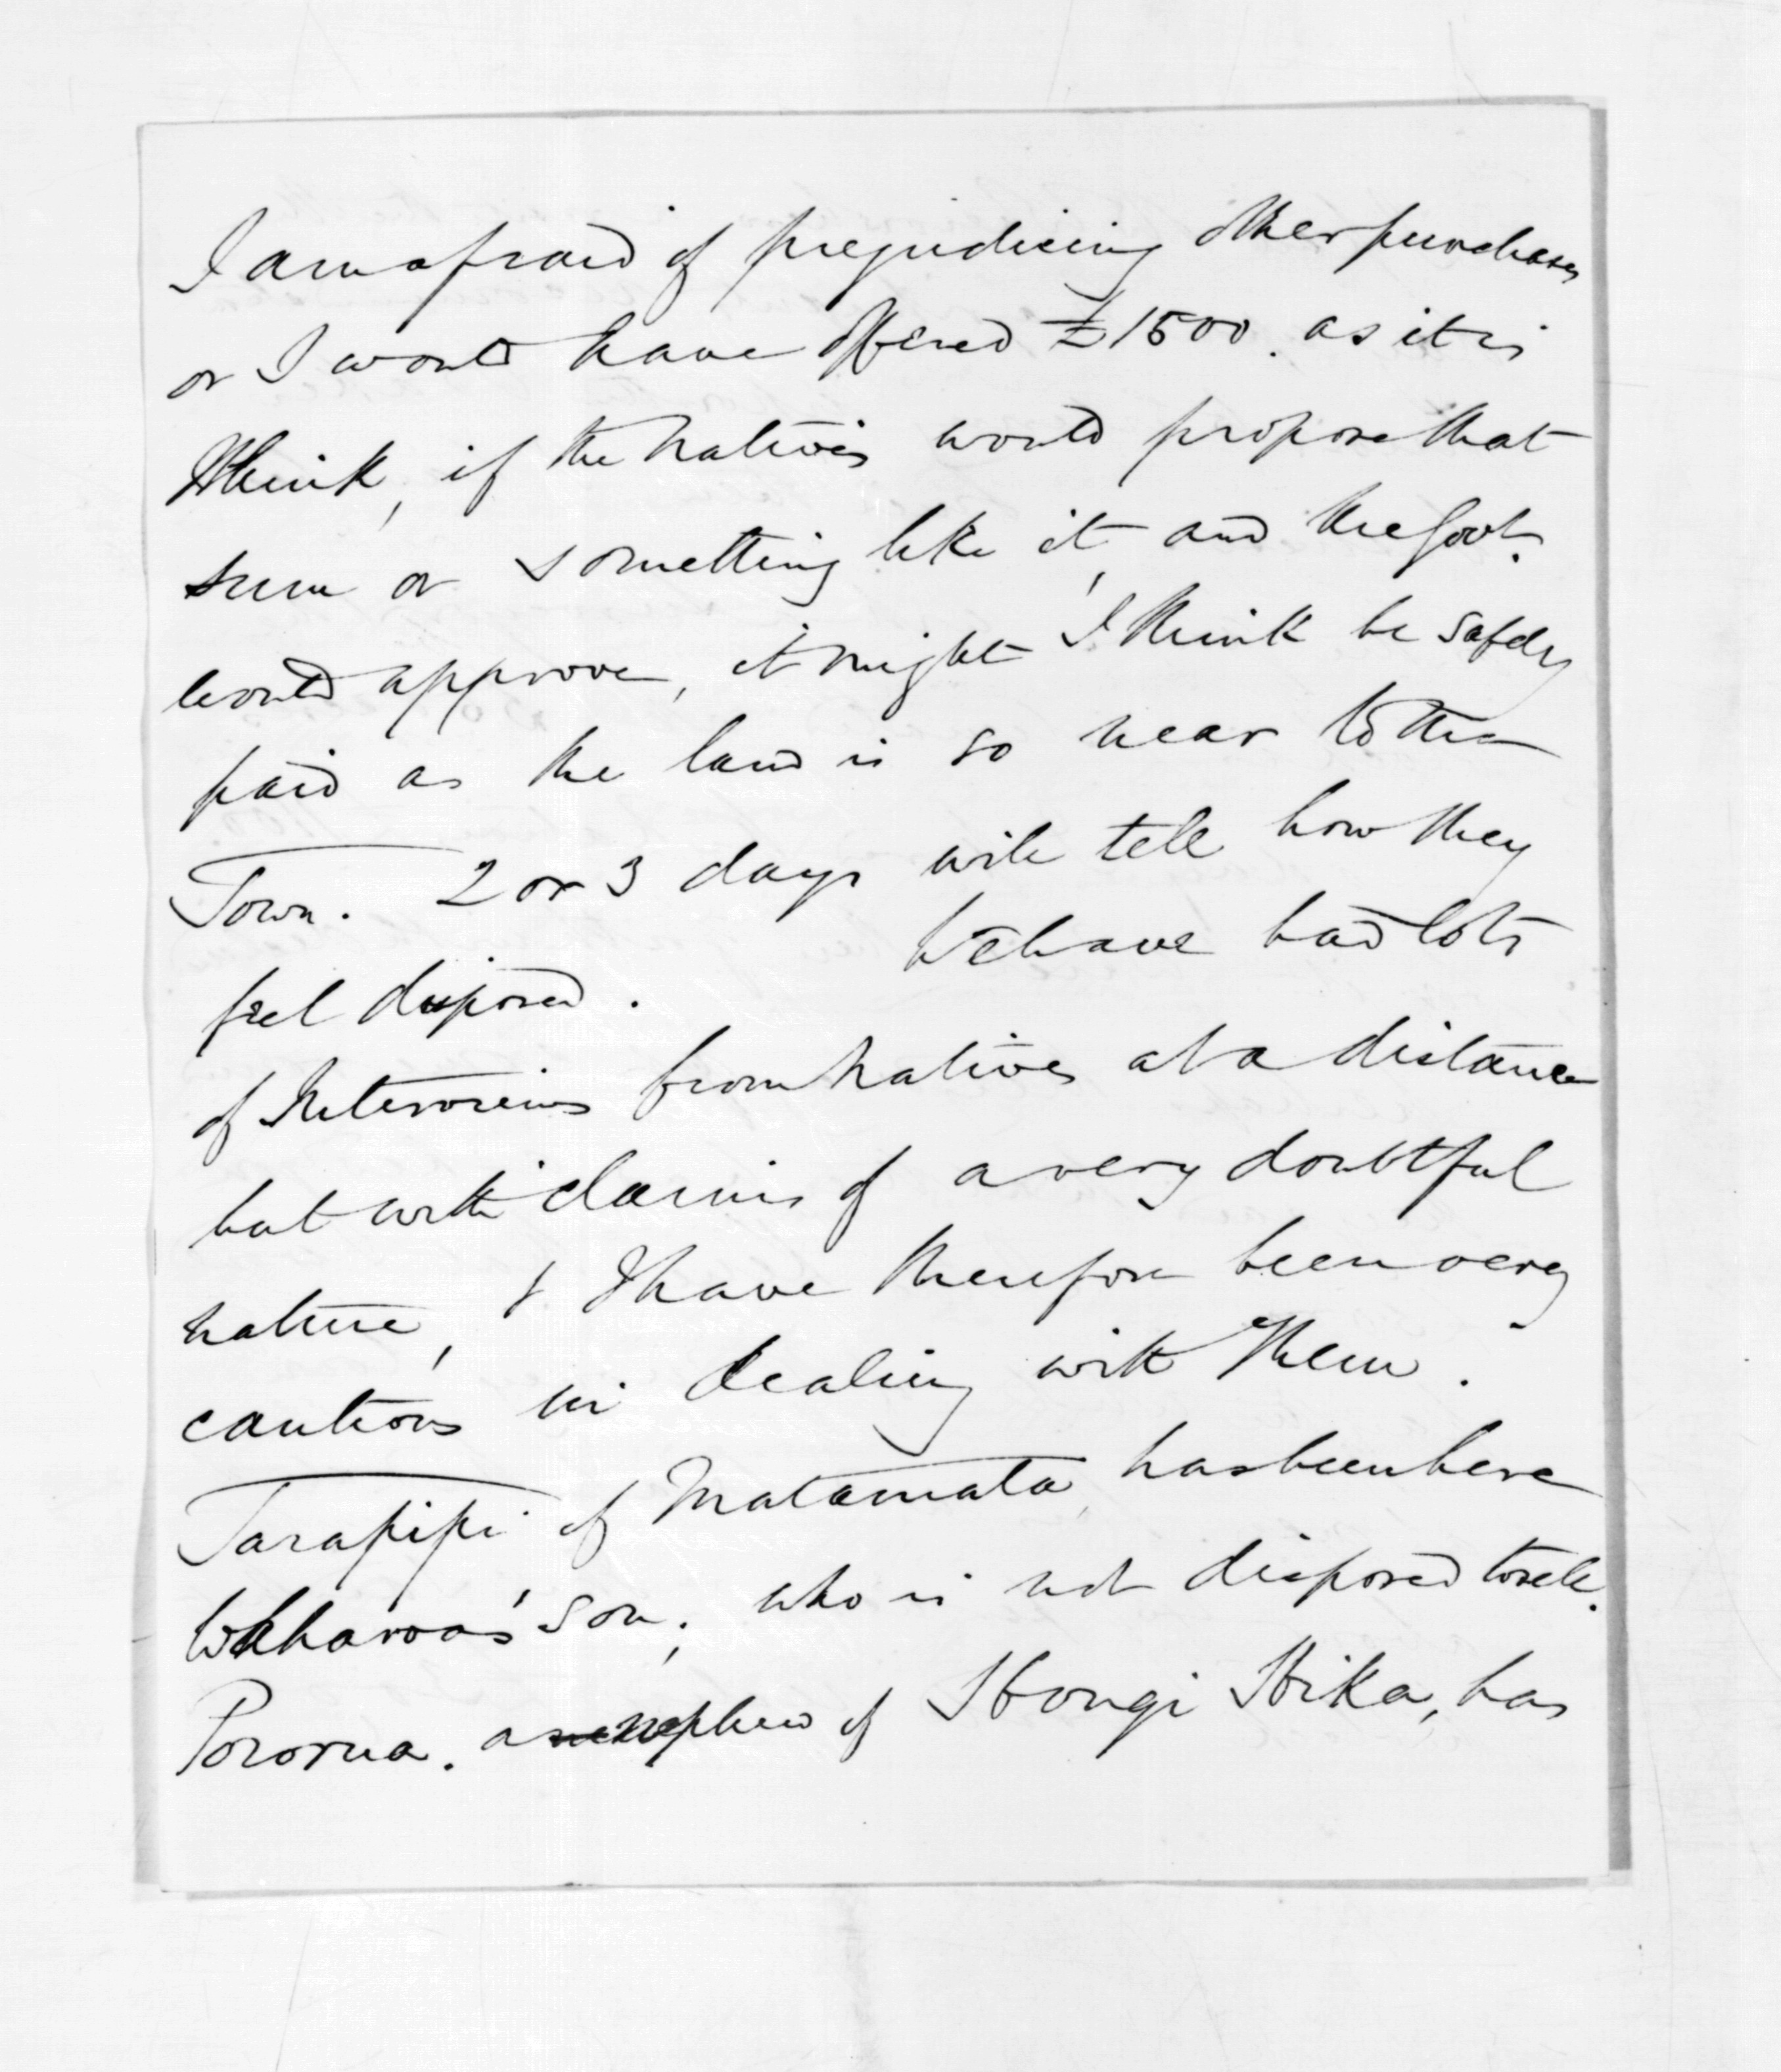 I am afraid of prejudicing other purchases
or I would have offered £1500. as it is
I think, if the natives would propose that
sum or something like it, and the Govt.
would approve, it might I think be safely
paid as the land is so near to the
Town. 2 or 3 days will tell how they
feel disposed. We have had lots
of Interviews from natives at a distance
but with claims of a very doubtful
nature, & I have therefore been very
cautious in dealing with them.
Tarapipi of Matamata, has been here
Wharoas' son; who is not disposed to sell.
Pororua. a nephew of Hongi Hika, has